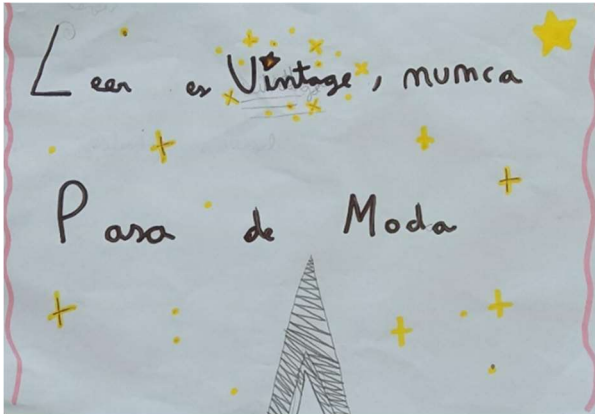 Leer es Vintage, nunca
Pasa de Moda